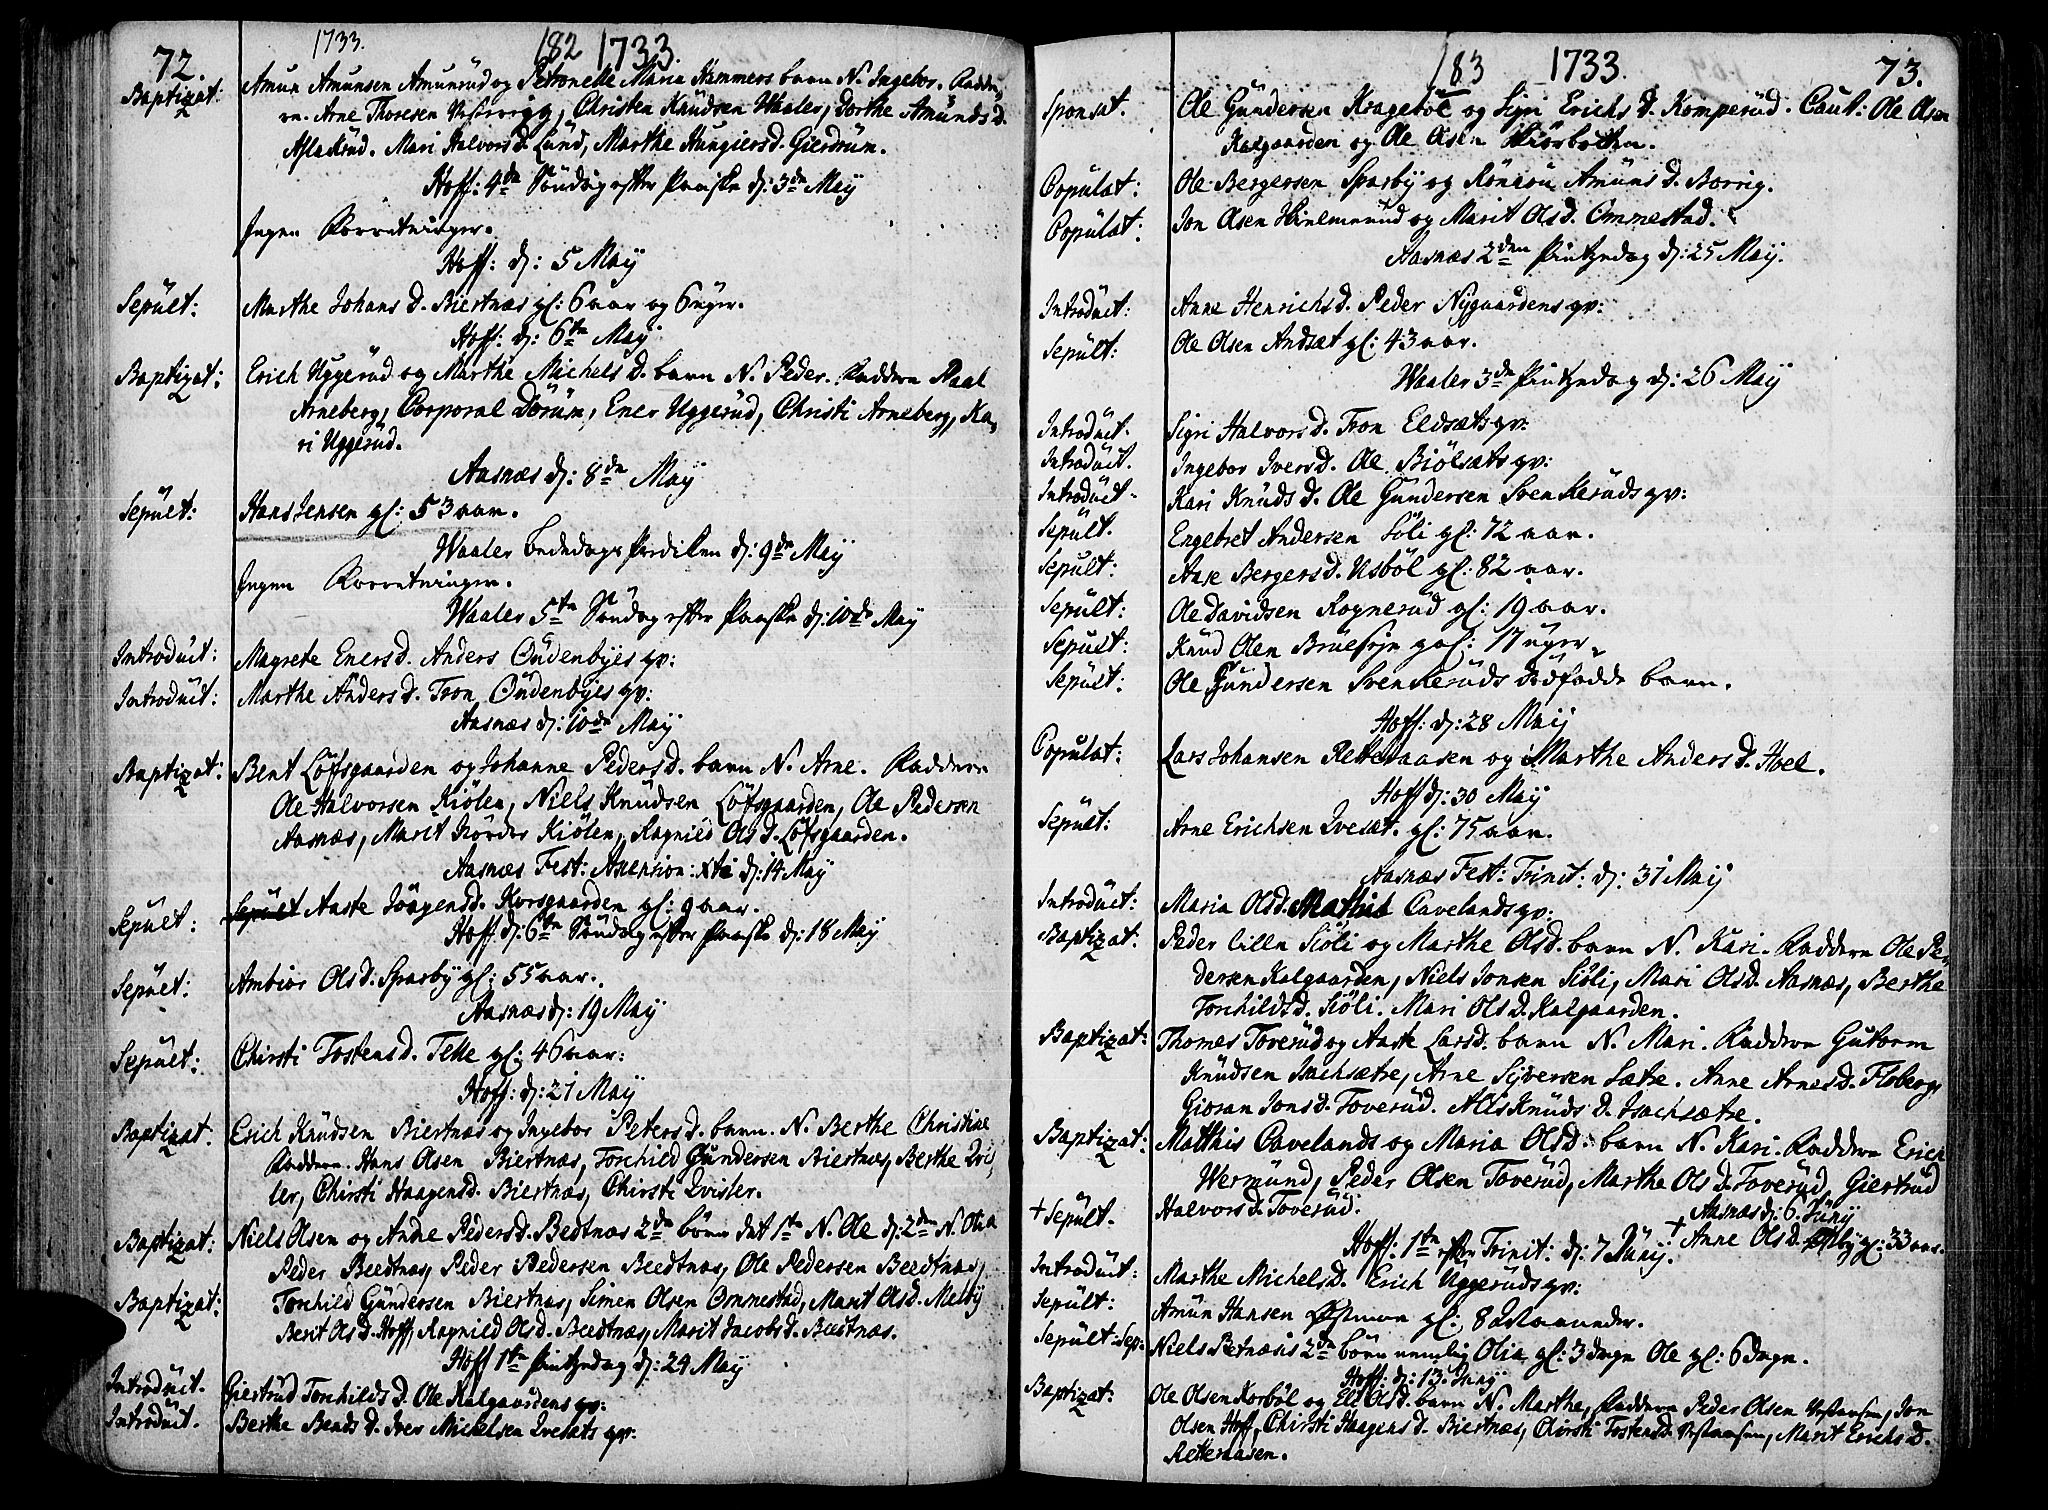 72. 1733. 182 1733.
Baptizat: Amun Amunsen Amunrud og Petronelle Maria Hammers barn N. Ingebor. Faddere
Arne Thoresen, Christen Knudsen Waaler, Dorthe Amunds D.
Aslakrud. Mari Halvors D. Lund, Marthe Hungiers D. Gierdrum.
Hoff: 4de Söndag efter Paaske d: 3de Maij
Ingen Forretninger.
Hoff: d: 5 Maij
Sepult: Marthe Johans D. Biertnæs gl: 6 aar og 6 uger.
Hoff: d: 6te Maij
Baptizat: Erich Uggerud og Marthe Michels D. barn N. Peder. Faddere Paal
Arneberg, Corporal Dörum, Ener Uggerud, Christi Arneberg, Ka-
ri Uggerud.
Aasnæs d: 8de Maij
Sepult: Hans Jensen gl: 53 aar.
Waaler Bededags Prediken d: 9de Maij
Ingen Forretninger.
Waaler 5te Söndag efter Paaske d: 10de Maij
Introduct: Magrete Eners d. Anders Oudenbyes qv:
Introduct: Marthe Anders d. Tron Oudenbyes qv:
Aasnæs d: 10de Maij
Baptizat: Bent Löfsgaarden og Johanne Peders d. barn N. Arne. Faddere
Ole Halvorsen Kiölen, Niels Knudsen Löfsgaarden, Ole Pedersen
Aasnæs, Marit Kiölen, Ragnild Ols D. Löfsgaarden.
Aasnæs Fest: Ascension: Xti d: 14 Maij
Sepult: Sepult Aaste Jöngens d. Korsgaarden gl: 9 aar.
Hoff d: 6te Söndag efter Paaske d: 18 Maij
Sepult: Ambior Ols D. Sparby gl: 55 aar.
Aasnæs d: 19 Maij
Sepult: Chirsti Tostens d. Telle gl: 46 aar:
Hoff: d: 21 Maij
Baptizat. Erich Knudsen Biertnæs og Ingebor Peters D. barn. N. Berthe Christine
Faddere. Hans Olsen Biertnæs, Torchild Gundersen Biertnæs, Berthe Qvis-
ler, Chirsti Haagens d. Biertnæs, Chirsti Qvisler.
Baptizat: Niels Olsen og Anne Peders d. Beedtnæs 2de börn det 1te N. Ole d: 2de N. Olia
Peder Beedtnæs, Peder Pedersen Beedtnæs, Ole Pedersen Beedtnæs,
Baptizat: Torchild Gundersen Biertnæs, Simen Olsen Ommestad, Marit Ols D. Melby
Berit Ols D. Hoff, Ragnild Ols D. Beedtnæs, Marit Jacobs d. Beedtnæs.
Hoff 1te Pintzedag d: 24 Maij
Introduct. Giertrud Torchilds D. Ole Kalgaardens qv:
Introduct. Berthe Bends D. Iver Mickelsen Qvesæts qv:
183 1733. 73.
Sponsat. Ole Gundersen Krageböl og Sigri Erichs D. Komperud. Caut: Ole Olsen
Kalgaarden og Ole Olsen
Copulat: Ole Bergersen Sparby og Rönnou Amuns D. Borrig.
Copulat: Jon Olsen Hielmerud og Marit Ols D. Ommestad.
Aasnæs 2den Pintzedag d: 25 Maij.
Introduct: Anne Henrichs D. Peder Nygaardens qv:
Sepult: Ole Olsen Andsæt gl: 43 aar.
Waaler 3de Pintzedag d: 26 Maij
Introduct. Sigri Halvors D. Tron Eldsæts qv:
Introduct. Ingebor Ivers D. Ole Biölsæts qv:
Introduct. Kari Knuds D. Ole Gundersen Svenkeruds qv:
Sepult. Engebret Andersen Söli gl: 72 aar.
Sepult: Aase Bergers D. Usböl gl: 82 aar.
Sepult: Ole Davidsen Rognerud gl: 19 aar.
Sepult: Knud Olsen gl: 17 uger
Sepult: Ole Gundersen Svenkeruds dödfödde barn.
Hoff: d: 28 Maij
Copulat: Lars Johansen Retteraasen og Marthe Anders D. Hoel.
Hoff d: 30 Maij
Sepult: Arne Erichsen Qvesæt. gl: 75 aar.
Aasnæs Fest: Trinit: d: 31 Maij
Introduct: Maria Ols d. Mathis Cavelands qv:
Baptizat. Peder lille Siöli og Marthe Ols d. barn N. Kari. Faddere Ole Pe-
dersen Kalgaarden, Niels Jonsen Siöli, Mari Ols D. Aasnæs, Berthe
Torchilds D. Siöli. Mari Ols D. Kalgaarden.
Baptizat: Thomas Toverud og Aaste Lars d. barn N. Mari. Faddere Guttorm
Knudsen Isachsætre, Arne Syversen Sætre. Anne Arnes D. Floberg,
Gioran Jons d. Toverud. Alis Knuds D. Isachsætre.
Baptizat: Matthis Cavelands og Maria Ols D. barn N. Kari. Faddere Erich
Wermund, Peder Olsen Toverud, Marthe Ols D. Toverud, Giertrud
Halvors D. Toverud.
+ Sepult. Aasnæs d: 6. Junij
+ Anne Ols D. gl: 33 aar.
Hoff: 1te efter Trinit: d: 7 Junij.
Introduct: Marthe Michels D. Erich Uggeruds qv:
Sepult: Amun Hansen gl: 8 Maaneder.
Sepult: Sep: Niels Betnæsis 2de börn nemlig Olia gl: 3 dage Ole gl: 6 dage.
Hoff: d: 13. Junij
Baptizat: Ole Olsen Korböl og Eli Ols D. barn N. Marthe, Faddere Peder Olsen, Jon
Olsen Hoff, Chirsti Haagens D. Biertnæs, Chirsti Tostens D., Marit Erichs D.
Retteraasen.